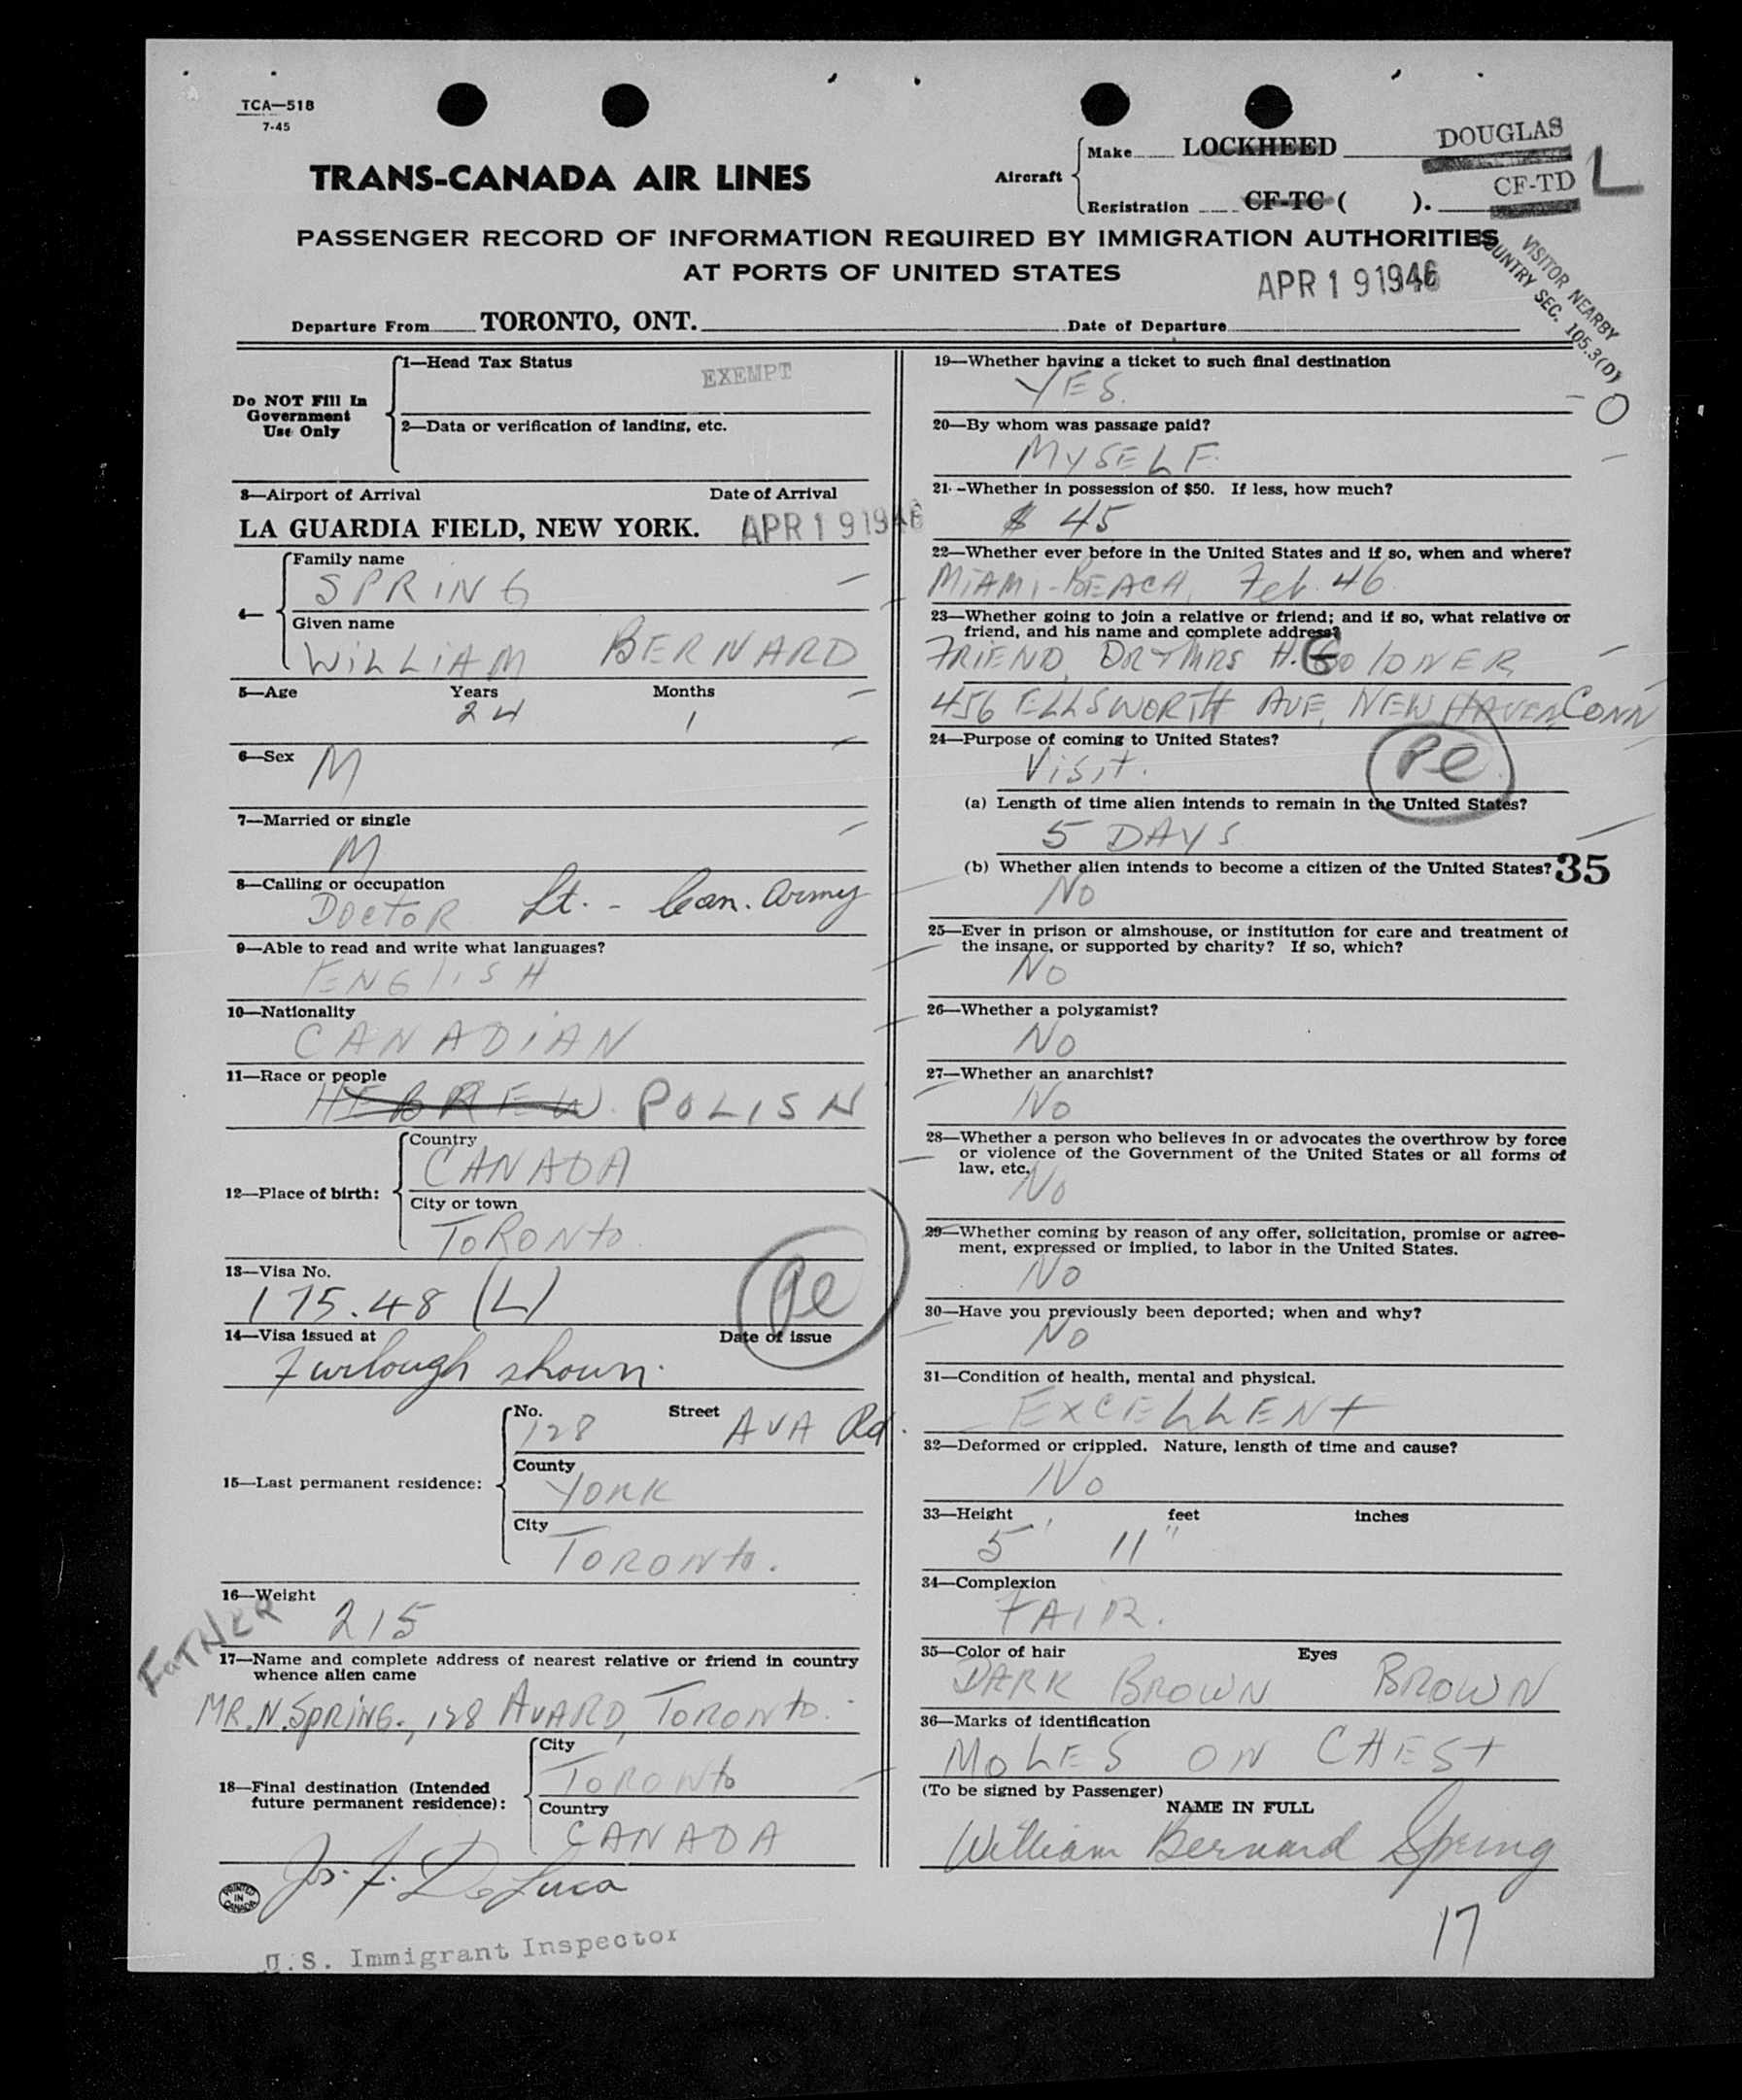 TCA—518
7-45
TRANS-CANADA AIR LINES
Aircraft
Make LOCKHEED DOUGLAS
Registration CF-TC ( ). CF-TD L
PASSENGER RECORD OF INFORMATION REQUIRED BY IMMIGRATION AUTHORITIES
AT PORTS OF UNITED STATES
VISITOR NEARBY
COUNTRY SEC. 105.3(D)
APR 19 1946
Departure From TORONTO, ONT. Date of Departure
Do NOT Fill In
Government
Use Only
1—Head Tax Status EXEMPT
2—Data or verification of landing, etc.
3—Airport of Arrival Date of Arrival
LA GUARDIA FIELD, NEW YORK. APR 19 1946
4—
Family name
SPRING
Given name
WILLIAM BERNARD
5—Age Years Months
24 1
6—Sex M
7—Married or single
M
8—Calling or occupation
DOCTOR Lt. - Can. Army
9—Able to read and write what languages?
ENGLISH
10—Nationality
CANADIAN
11—Race or people
HEBREW POLISH
12—Place of birth:
Country
CANADA
City or town
TORONTO
13—Visa No.
175.48 (L)
14—Visa issued at Date of issue
Furlough shown.
15—Last permanent residence:
No. Street
128 AVA Rd.
County
YORK
City
TORONTO.
16—Weight
215
FATHER
17—Name and complete address of nearest relative or friend in country
whence alien came
MR. N. SPRING., 128 AVA RD, TORONTO.
18—Final destination (Intended
future permanent residence):
City
TORONTO
Country
CANADA
Jos. F. De Luca
PRINTED
IN
CANADA
U.S. Immigrant Inspector
19—Whether having a ticket to such final destination
YES.
20—By whom was passage paid?
MYSELF.
21—Whether in possession of $50. If less, how much?
$ 45
22—Whether ever before in the United States and if so, when and where?
MIAMI-BEACH, Feb. 46
23—Whether going to join a relative or friend; and if so, what relative or
friend, and his name and complete address?
FRIEND, DR & MRS H.
456 ELLSWORTH AVE, NEW HAVEN, CONN
24—Purpose of coming to United States?
Visit.
(a) Length of time alien intends to remain in the United States?
5 DAYS
(b) Whether alien intends to become a citizen of the United States? 35
NO
25—Ever in prison or almshouse, or institution for care and treatment of
the insane, or supported by charity? If so, which?
NO
26—Whether a polygamist?
NO
27—Whether an anarchist?
NO
28—Whether a person who believes in or advocates the overthrow by force
or violence of the Government of the United States or all forms of
law, etc.
NO
29—Whether coming by reason of any offer, solicitation, promise or agree-
ment, expressed or implied, to labor in the United States.
NO
30—Have you previously been deported; when and why?
NO
31—Condition of health, mental and physical.
EXCELLENT
32—Deformed or crippled. Nature, length of time and cause?
NO
33—Height feet inches
5' 11"
34—Complexion
FAIR.
35—Color of hair Eyes
DARK BROWN BROWN
36—Marks of identification
MOLES ON CHEST
(To be signed by Passenger)
NAME IN FULL
William Bernard Spring
17